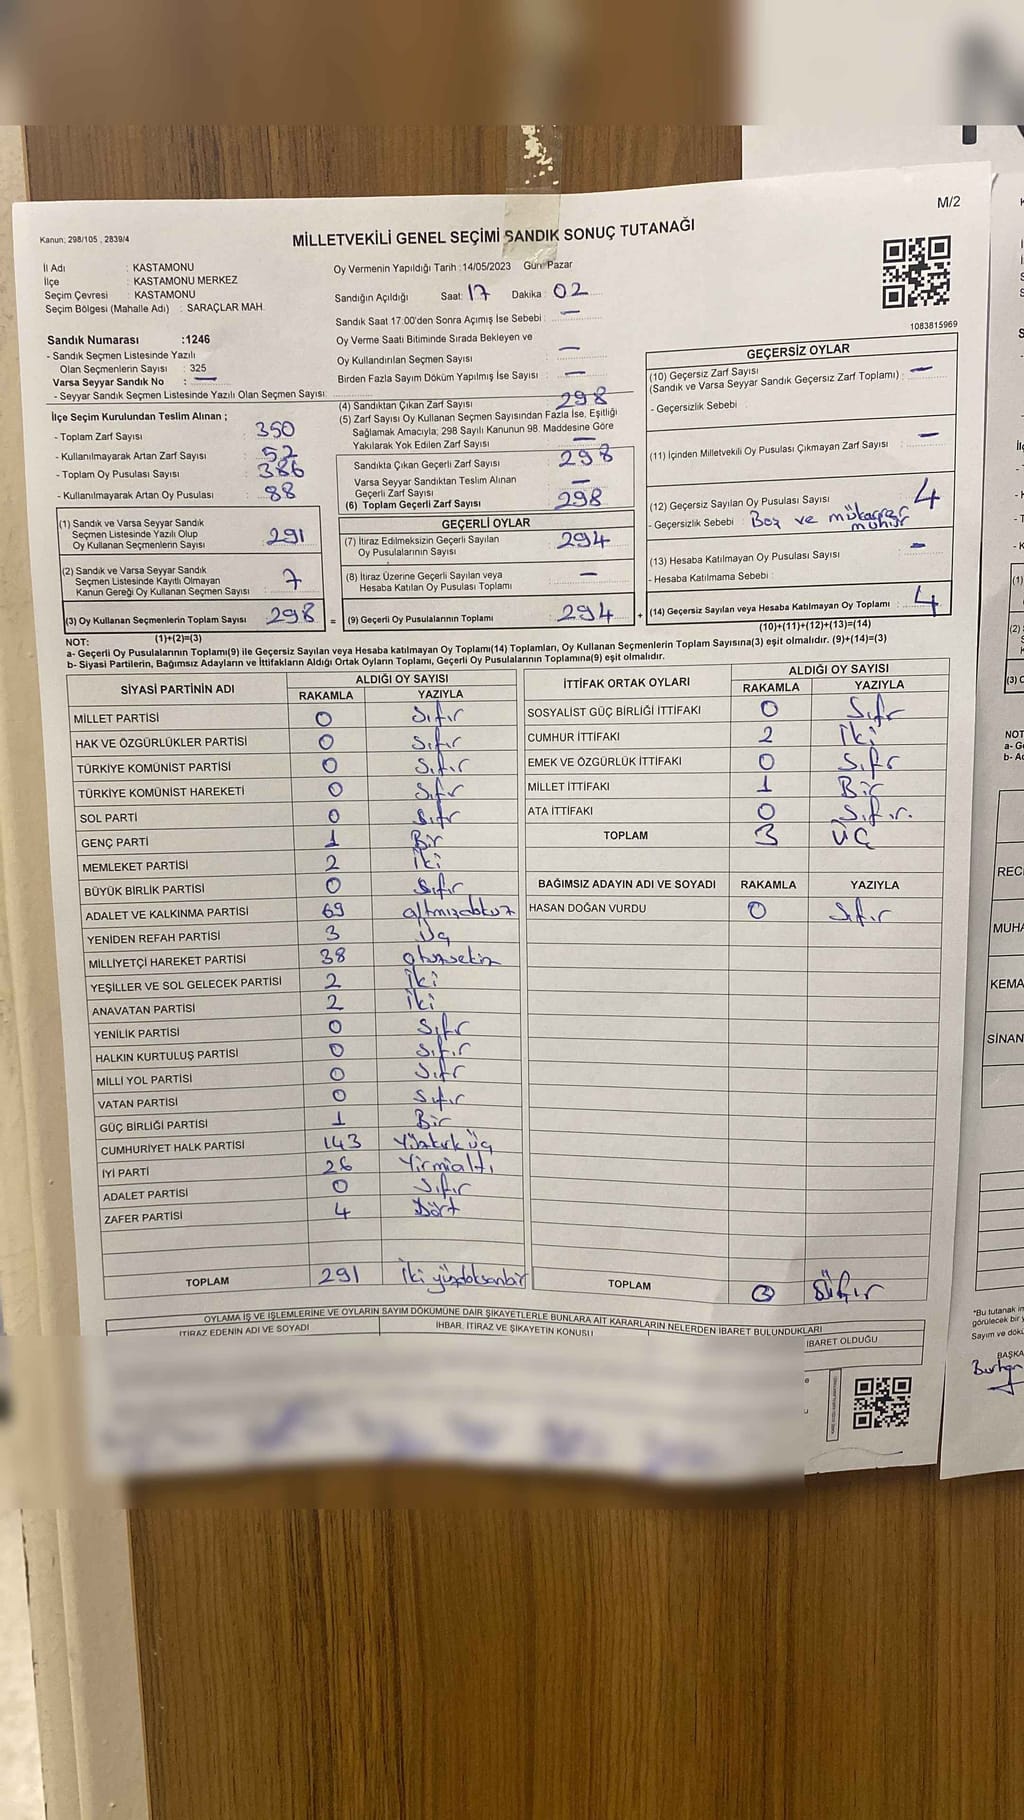 M/2
Kanun; 298/105 , 2839/4
MİLLETVEKİLİ GENEL SEÇİMİ SANDIK SONUÇ TUTANAĞI
İl Adı : KASTAMONU
İlçe : KASTAMONU MERKEZ
Seçim Çevresi : KASTAMONU
Seçim Bölgesi (Mahalle Adı) : SARAÇLAR MAH.
Sandık Numarası :1246
- Sandık Seçmen Listesinde Yazılı
Olan Seçmenlerin Sayısı : 325
Varsa Seyyar Sandık No : —
- Seyyar Sandık Seçmen Listesinde Yazılı Olan Seçmen Sayısı:
İlçe Seçim Kurulundan Teslim Alınan ;
- Toplam Zarf Sayısı : 350
- Kullanılmayarak Artan Zarf Sayısı : 52
- Toplam Oy Pusulası Sayısı : 386
- Kullanılmayarak Artan Oy Pusulası : 88
(1) Sandık ve Varsa Seyyar Sandık
Seçmen Listesinde Yazılı Olup
Oy Kullanan Seçmenlerin Sayısı : 291
(2) Sandık ve Varsa Seyyar Sandık
Seçmen Listesinde Kayıtlı Olmayan
Kanun Gereği Oy Kullanan Seçmen Sayısı : 7
(3) Oy Kullanan Seçmenlerin Toplam Sayısı : 298 =
Oy Vermenin Yapıldığı Tarih :14/05/2023 Gün: Pazar
Sandığın Açıldığı Saat: 17 Dakika : 02
Sandık Saat 17:00'den Sonra Açımış İse Sebebi : —
Oy Verme Saati Bitiminde Sırada Bekleyen ve
Oy Kullandırılan Seçmen Sayısı : —
Birden Fazla Sayım Döküm Yapılmış İse Sayısı : —
(4) Sandıktan Çıkan Zarf Sayısı : 298
(5) Zarf Sayısı Oy Kullanan Seçmen Sayısından Fazla İse, Eşitliği
Sağlamak Amacıyla; 298 Sayılı Kanunun 98. Maddesine Göre
Yakılarak Yok Edilen Zarf Sayısı : —
Sandıkta Çıkan Geçerli Zarf Sayısı : 298
Varsa Seyyar Sandıktan Teslim Alınan
Geçerli Zarf Sayısı : —
(6) Toplam Geçerli Zarf Sayısı : 298
GEÇERLİ OYLAR
(7) İtiraz Edilmeksizin Geçerli Sayılan
Oy Pusulalarının Sayısı : 294
(8) İtiraz Üzerine Geçerli Sayılan veya
Hesaba Katılan Oy Pusulası Toplamı : —
(9) Geçerli Oy Pusulalarının Toplamı : 294 +
1083815969
GEÇERSİZ OYLAR
(10) Geçersiz Zarf Sayısı : —
(Sandık ve Varsa Seyyar Sandık Geçersiz Zarf Toplamı)
- Geçersizlik Sebebi :
(11) İçinden Milletvekili Oy Pusulası Çıkmayan Zarf Sayısı : —
(12) Geçersiz Sayılan Oy Pusulası Sayısı : 4
- Geçersizlik Sebebi : Boş ve mükerrer
mühür
(13) Hesaba Katılmayan Oy Pusulası Sayısı : —
- Hesaba Katılmama Sebebi :
(14) Geçersiz Sayılan veya Hesaba Katılmayan Oy Toplamı : 4
(10)+(11)+(12)+(13)=(14)
NOT: (1)+(2)=(3)
a- Geçerli Oy Pusulalarının Toplamı(9) ile Geçersiz Sayılan veya Hesaba katılmayan Oy Toplamı(14) Toplamları, Oy Kullanan Seçmenlerin Toplam Sayısına(3) eşit olmalıdır. (9)+(14)=(3)
b- Siyasi Partilerin, Bağımsız Adayların ve İttifakların Aldığı Ortak Oyların Toplamı, Geçerli Oy Pusulalarının Toplamına(9) eşit olmalıdır.
SİYASİ PARTİNİN ADI ALDIĞI OY SAYISI
RAKAMLA YAZIYLA
MİLLET PARTİSİ 0 Sıfır
HAK VE ÖZGÜRLÜKLER PARTİSİ 0 Sıfır
TÜRKİYE KOMÜNİST PARTİSİ 0 Sıfır
TÜRKİYE KOMÜNİST HAREKETİ 0 Sıfır
SOL PARTİ 0 Sıfır
GENÇ PARTİ 1 Bir
MEMLEKET PARTİSİ 2 İki
BÜYÜK BİRLİK PARTİSİ 0 Sıfır
ADALET VE KALKINMA PARTİSİ 69 altmışdokuz
YENİDEN REFAH PARTİSİ 3 üç
MİLLİYETÇİ HAREKET PARTİSİ 38 otuzsekiz
YEŞİLLER VE SOL GELECEK PARTİSİ 2 İki
ANAVATAN PARTİSİ 2 İki
YENİLİK PARTİSİ 0 Sıfır
HALKIN KURTULUŞ PARTİSİ 0 Sıfır
MİLLİ YOL PARTİSİ 0 Sıfır
VATAN PARTİSİ 0 Sıfır
GÜÇ BİRLİĞİ PARTİSİ 1 Bir
CUMHURİYET HALK PARTİSİ 143 Yüzkırküç
İYİ PARTİ 26 Yirmialtı
ADALET PARTİSİ 0 Sıfır
ZAFER PARTİSİ 4 Dört
TOPLAM 291 İkiyüzdoksanbir
İTTİFAK ORTAK OYLARI ALDIĞI OY SAYISI
RAKAMLA YAZIYLA
SOSYALİST GÜÇ BİRLİĞİ İTTİFAKI 0 Sıfır
CUMHUR İTTİFAKI 2 İki
EMEK VE ÖZGÜRLÜK İTTİFAKI 0 Sıfır
MİLLET İTTİFAKI 1 Bir
ATA İTTİFAKI 0 Sıfır.
TOPLAM 3 ÜÇ
BAĞIMSIZ ADAYIN ADI VE SOYADI RAKAMLA YAZIYLA
HASAN DOĞAN VURDU 0 Sıfır
TOPLAM 0 Sıfır
OYLAMA İŞ VE İŞLEMLERİNE VE OYLARIN SAYIM DÖKÜMÜNE DAİR ŞİKAYETLERLE BUNLARA AİT KARARLARIN NELERDEN İBARET BULUNDUKLARI
İTİRAZ EDENİN ADI VE SOYADI İHBAR, İTİRAZ VE ŞİKAYETİN KONUSU İBARET OLDUĞU
NOT
a- G
b- A
REC
MUHA
KEMA
SİNAN
*Bu tutanak in
görülecek bir y
Sayım ve dökü
BAŞKA
Burhan